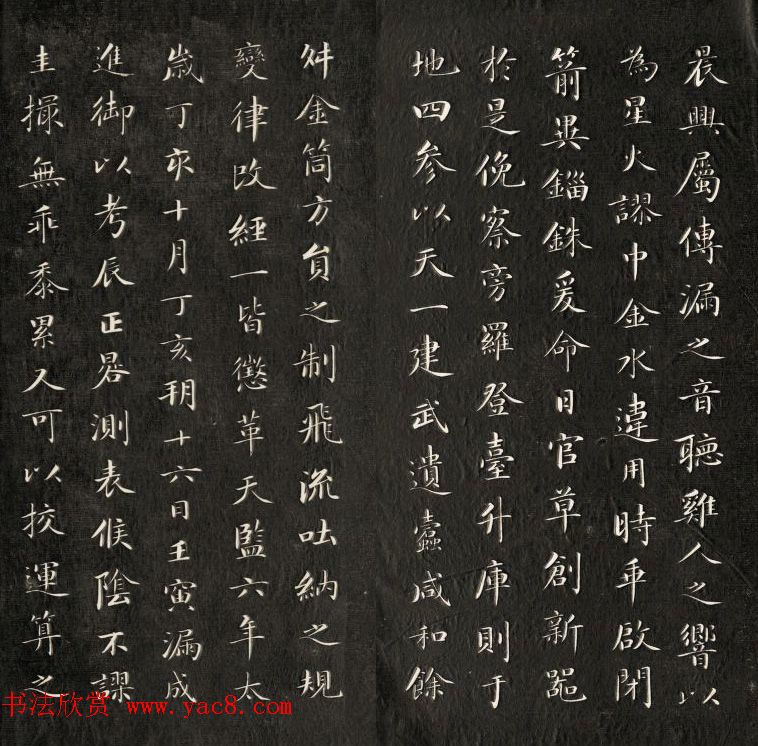 晨興屬傳漏之音聽雞人之響以
為星火謬中金水違用時乖啟閉
箭異錙銖爰命日官草創新器
於是俛察旁羅登臺升庫則于
地四参以天一建武遺蠹咸和餘
舛金筒方員之制飛流吐納之規
變律改經一皆懲革天監六年太
歲丁亥十月丁亥朔十六日壬寅漏成
進御以考辰正晷測表候陰不謬
圭撮無乖黍累又可以挍運算之
书法欣赏 www.yac8.com